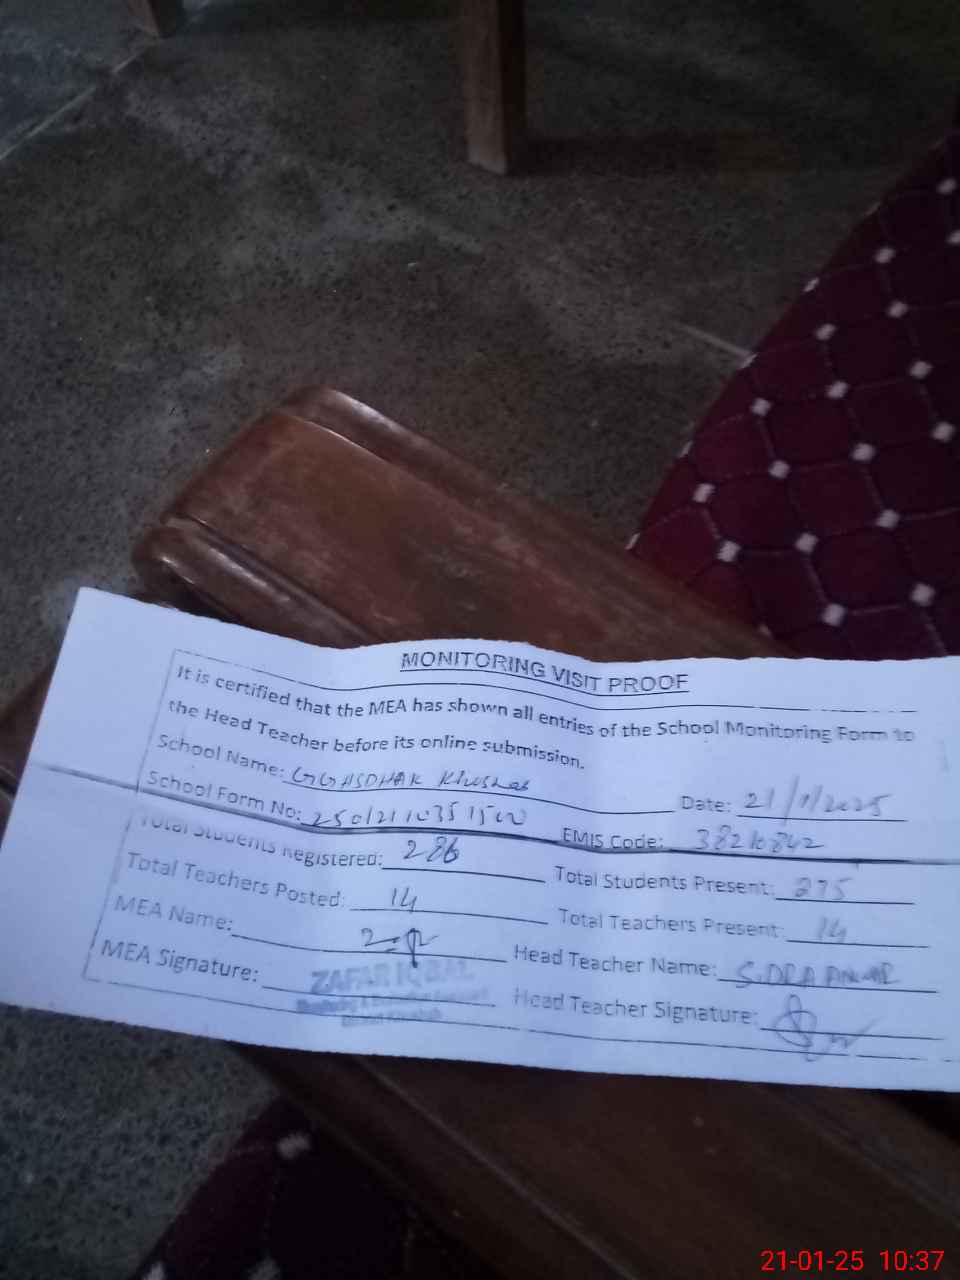 MONITORING VISIT PROOF
It is certified that the MEA has shown all entries of the School Monitoring Form to
the Head Teacher before its online submission.
School Name: GGHSDHAK Khushab
Date: 21/1/2025
School Form No:
EMIS Code: 38210842
Total Students Registered: 286
Total Students Present: 275
Total Teachers Posted: 14
Total Teachers Present: 14
MEA Name:
Head Teacher Name: SIDRA ANWAR
MEA Signature:
ZAFAR IQBAL
Head Teacher Signature:
21-01-25 10:37